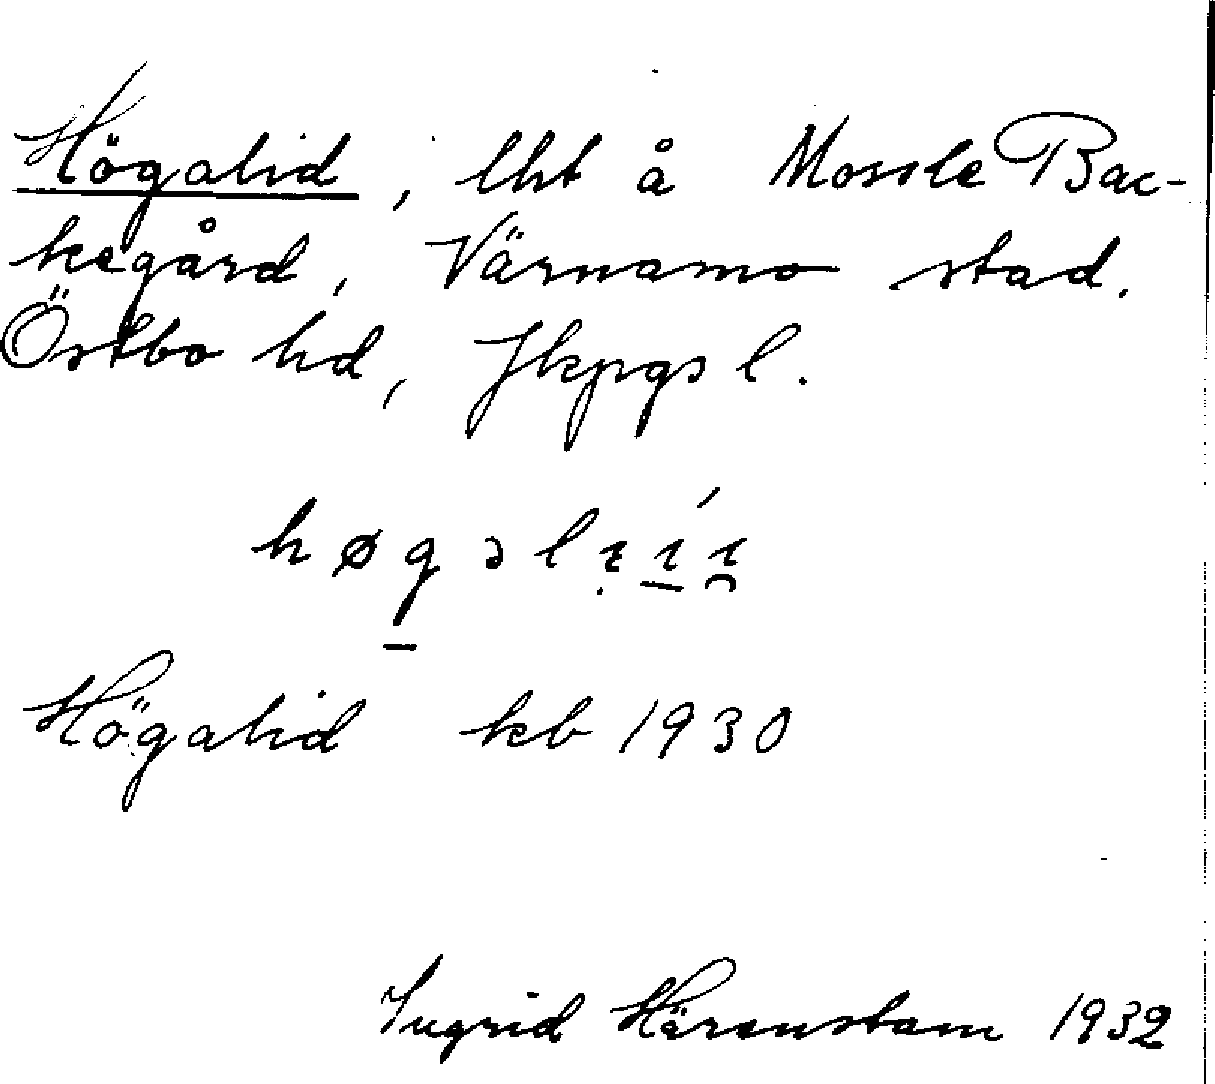 Högalid, lht å Mossle Bac-
kegård, Värnamo stad.
Östbo hd, Jkpgs l.
høgəlıíı
Högalid kb 1930
Ingrid Härenstam 1932